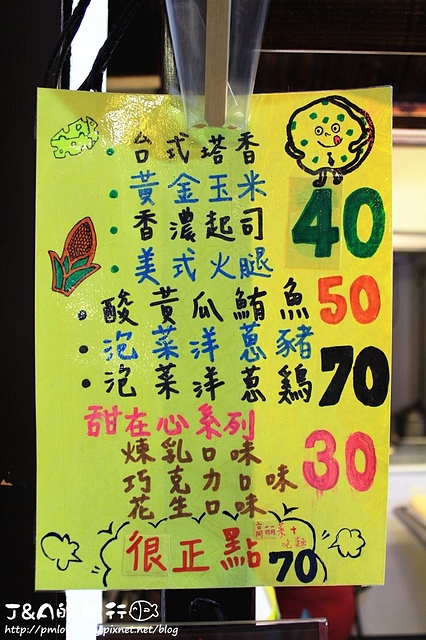 台式塔香
黃金玉米
香濃起司
美式火腿
40
酸黃瓜鮪魚 50
泡菜洋蔥豬
泡菜洋蔥鷄
70
甜在心系列
煉乳口味
巧克力口味
花生口味
30
高麗菜+
泡麵
很正點 70
J&A的旅行
http://pmlo pixnet.net/blog